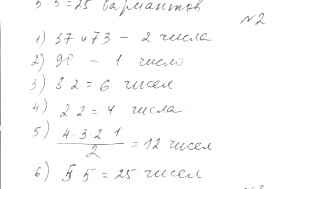 5 5 = 25 вариантов
№2
1) 37 и 73 - 2 числа
2) 90 - 1 число
3) 3 2 = 6 чисел
4) 2 2 = 4 числа
5) 4 · 3 2 1 / 2 = 12 чисел
6) 5 5 = 25 чисел